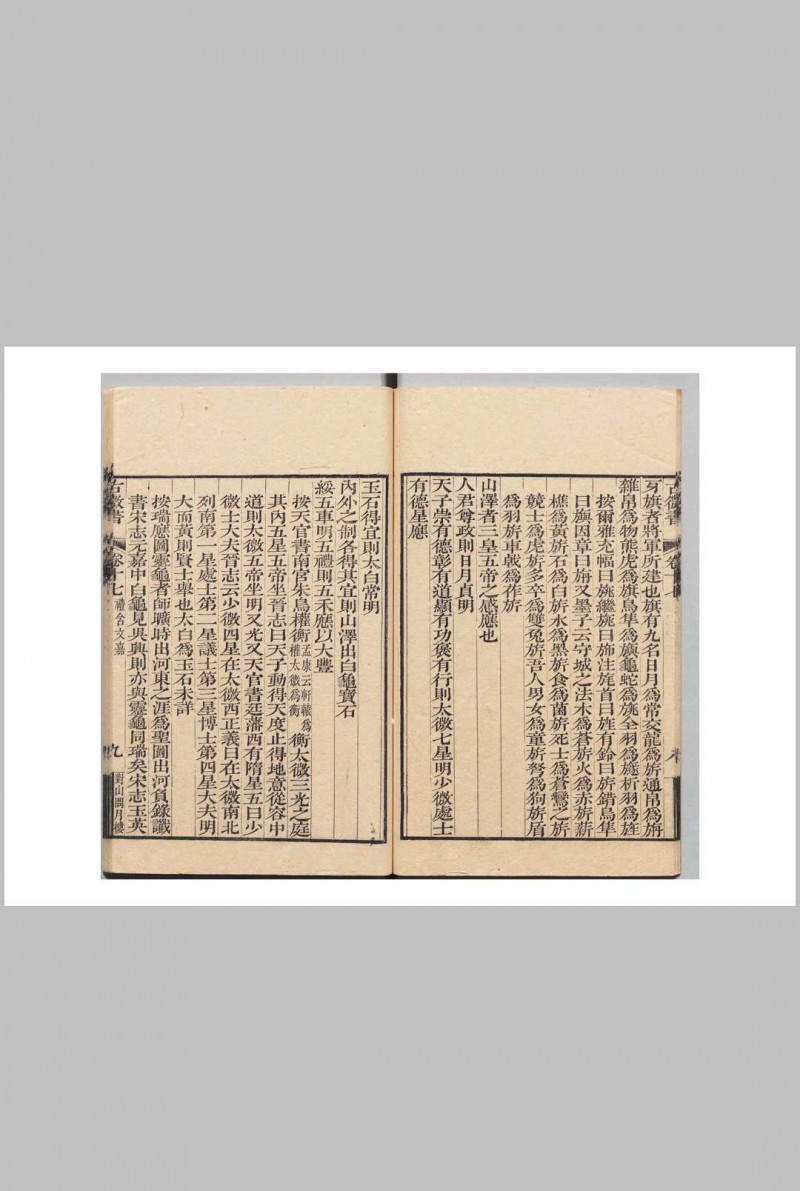 牙旗者將軍所建也旗有九名日月爲常交龍爲旂通帛爲旃
雜帛爲物熊虎爲旗鳥隼爲旟龜蛇爲旐全羽爲旞析羽爲旌
按爾雅充幅曰旐繼旐曰旆注旄首曰旌有鈴曰旂錯鳥隼
曰旟因章曰旃又墨子云守城之法木爲蒼旂火爲赤旂薪
樵爲黃旂石爲白旂水爲黑旂食爲菌旂死士爲蒼鸞之旂
競士爲虎旂多卒爲雙兔旂吾人男女爲童旂弩爲狗旂盾
爲羽旂車戟爲旂
山澤者三皇五帝之感應也
人君尊政則日月貞明
天子崇有德彰有道顯有功襃有行則太微七星明少微處士
有德星應
玉石得宜則太白常明
內外之制各得其宜則山澤出白龜寶石
綏五車明五禮則五禾應以大豐
按天官書南宮朱鳥權衡孟康云軒轅爲權太微爲衡衡太微三光之庭
其內五星五帝坐晉志曰天子動得天度止得地意從容中
道則太微五帝坐明又光又天官書廷藩西有隋星五曰少
微士大夫晉志云少微四星在太微西正義曰在太微南北
列南第一星處士第二星議士第三星博士第四星大夫明
大而黃則賢士舉也太白爲玉石未詳
按瑞應圖靈龜者師曠時出河東之涯爲聖圖出河負錄讖
書宋志元嘉中白龜見吳興則亦與靈龜同瑞矣宋志玉英
古微書 卷十七 禮含文嘉 九 對山問月樓